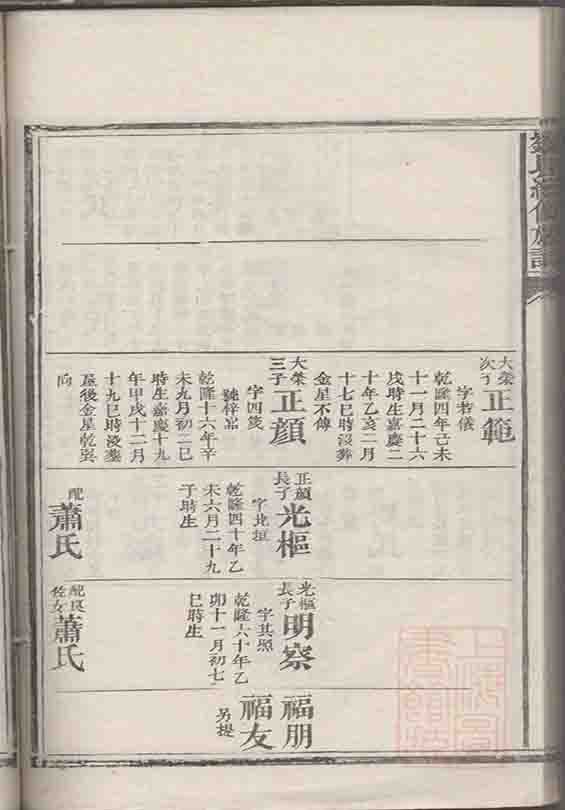 大榮
次子
正範
字若儀
乾隆四年己未
十一月二十六
戌時生嘉慶二
十年乙亥二月
十七巳時沒葬
金星不傳
大榮
三子
正顏
字四箴
號梓嵓
乾隆十六年辛
未九月初二巳
時生嘉慶十九
年甲戌十二月
十九巳時沒葬
屋後金星乾巽
向
正顏
長子
光樞
字北垣
乾隆四十年乙
未六月二十九
子時生
配
蕭氏
光樞
長子
明察
字其照
乾隆六十年乙
卯十一月初七
巳時生
配良
佐女
蕭氏
福朋
福友
另提